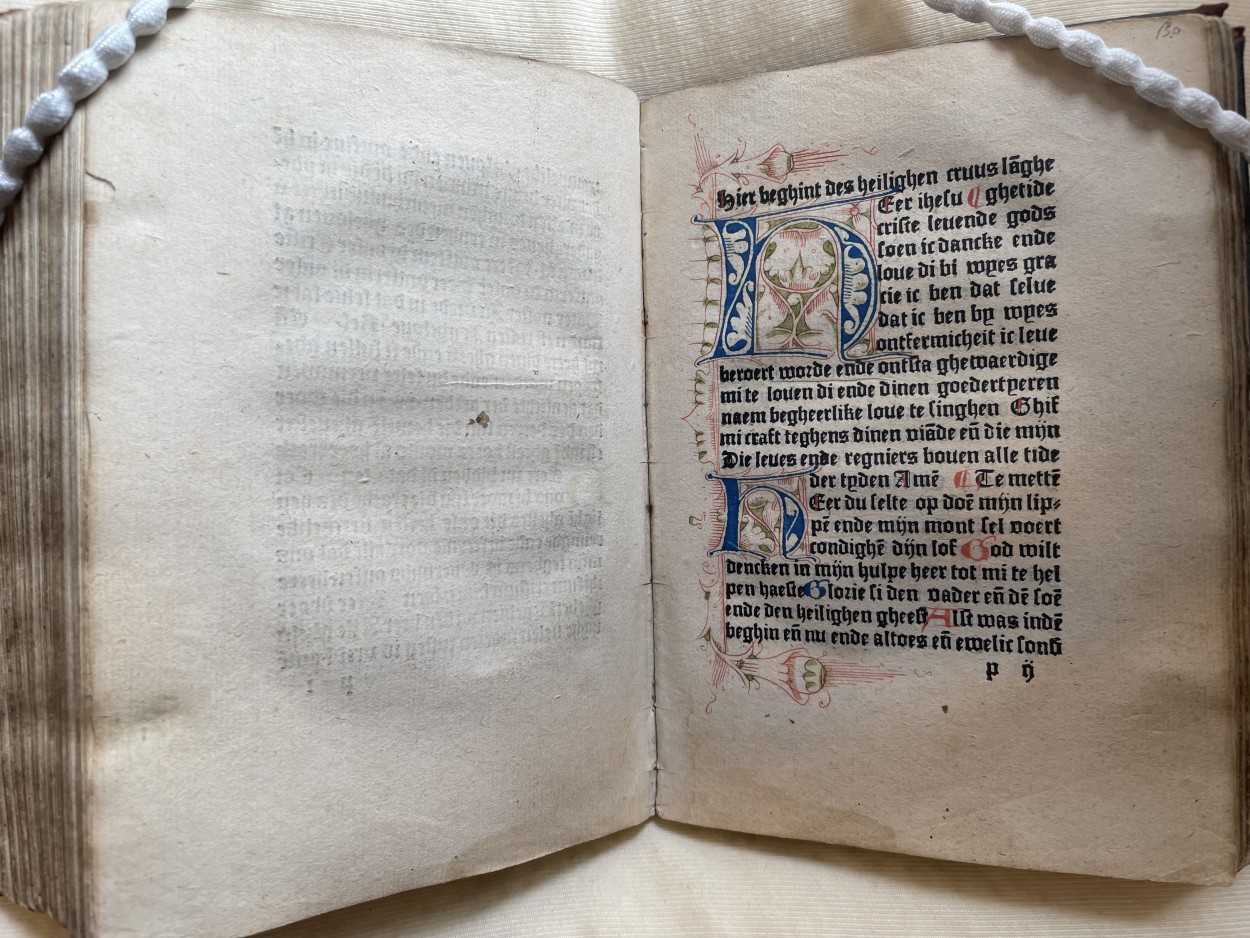 130
Hier beghint des heilighen cruus lāghe
HEer ihesu ⸿ ghetide
criste leuende gods
soen ic dancke ende
loue di bi wyes gra
cie ic ben dat selue
dat ic ben by wyes
ontfermicheit ic leue
beroert worde ende ontsta ghewaerdige
mi te louen di ende dinen goedertyeren
naem begheerlike loue te singhen Ghif
mi craft teghens dinen viāde eñ die mijn
Die leues ende regniers bouen alle tide
der tyden Amē ⸿ Te mettē
HEer du selte op doē mijn lip⸗
pē ende mijn mont sel voert
condighē dijn lof God wilt
dencken in mijn hulpe heer tot mi te hel
pen haeste Glorie si den vader eñ dē soē
ende den heilighen gheest Alst was indē
beghin eñ nu ende altoes eñ ewelic sond
p ij